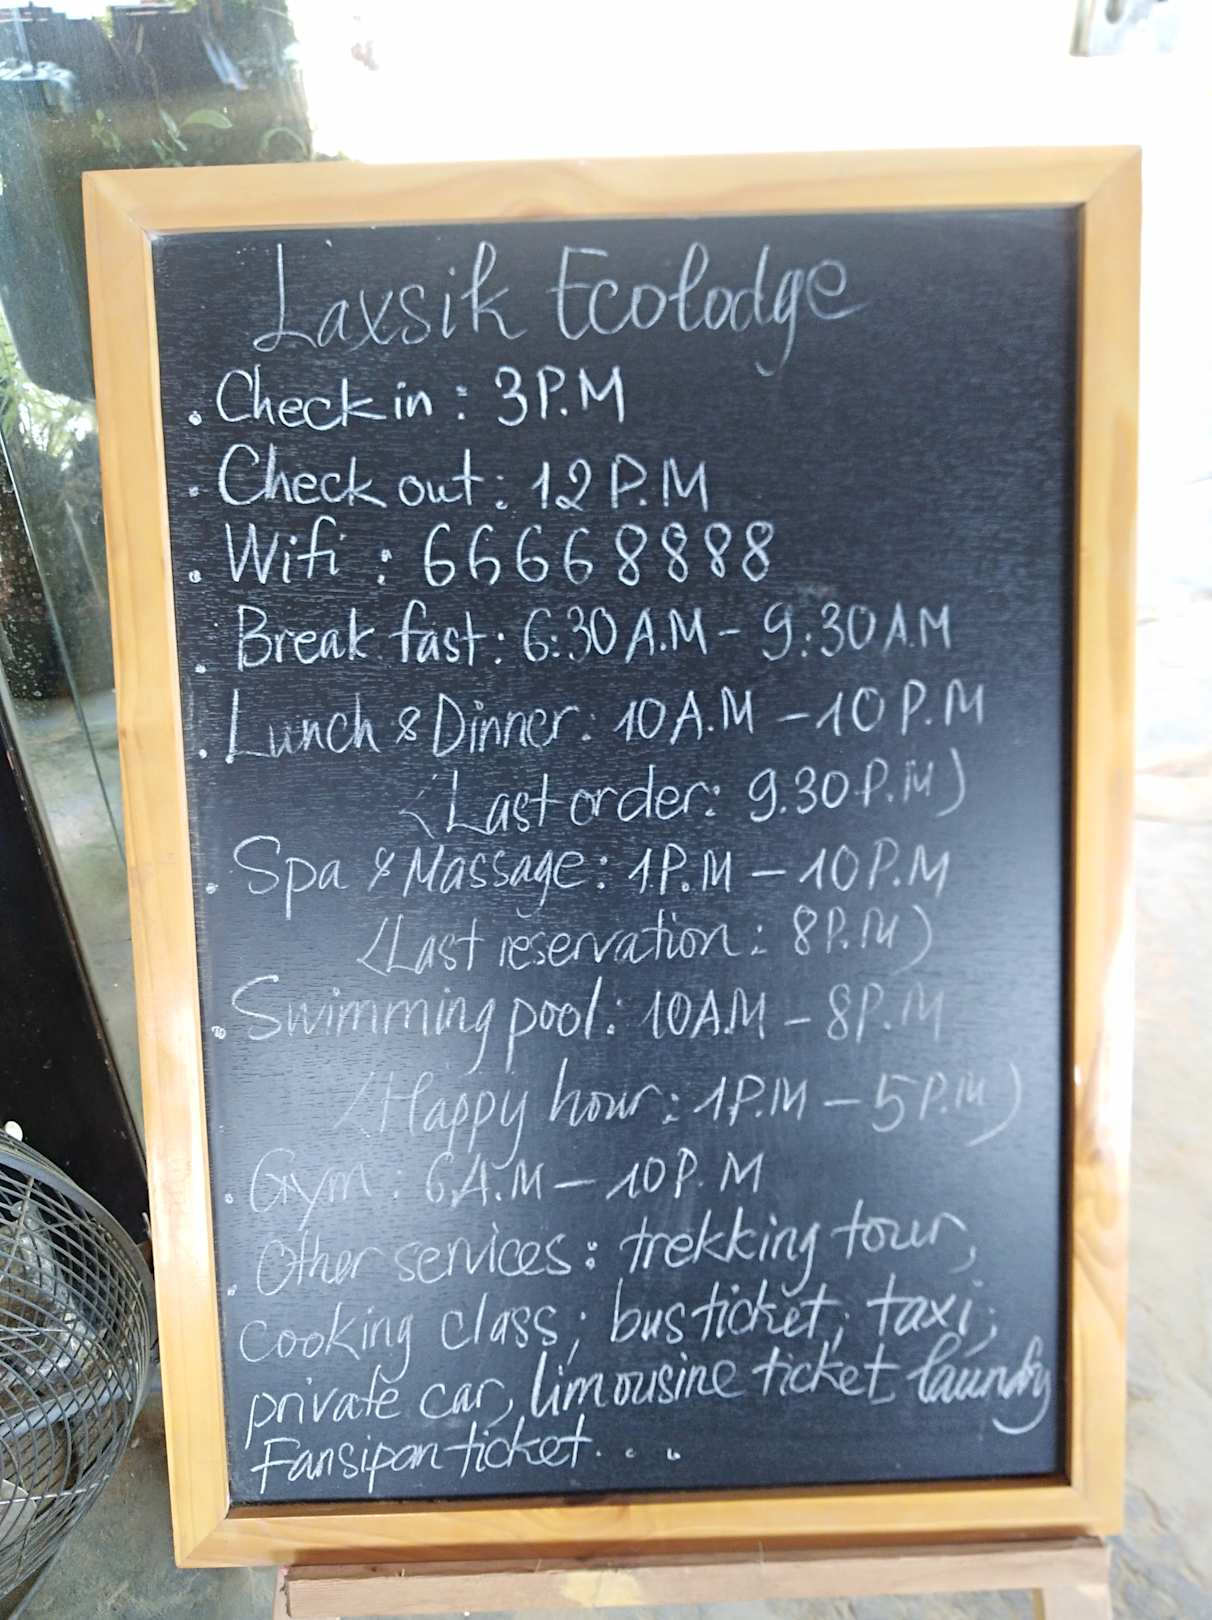 Laxsik Ecolodge
. Check in : 3P.M
. Check out : 12 P.M
. Wifi : 66668888
. Break fast : 6:30 A.M - 9:30 A.M
. Lunch & Dinner : 10 A.M - 10 P.M
(Last order : 9.30 P.M)
. Spa & Massage : 1P.M - 10 P.M
(Last reservation : 8P.M)
. Swimming pool : 10A.M - 8P.M
(Happy hour : 1P.M - 5 P.M)
. Gym : 6A.M - 10 P.M
. Other services : trekking tour,
cooking class ; bus ticket ; taxi ;
private car, limousine ticket, laundry
Fansipan ticket . . .